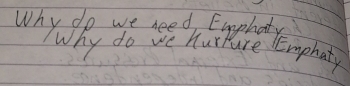 Why do we need Emphaty
Why do we Nurture Emphaty